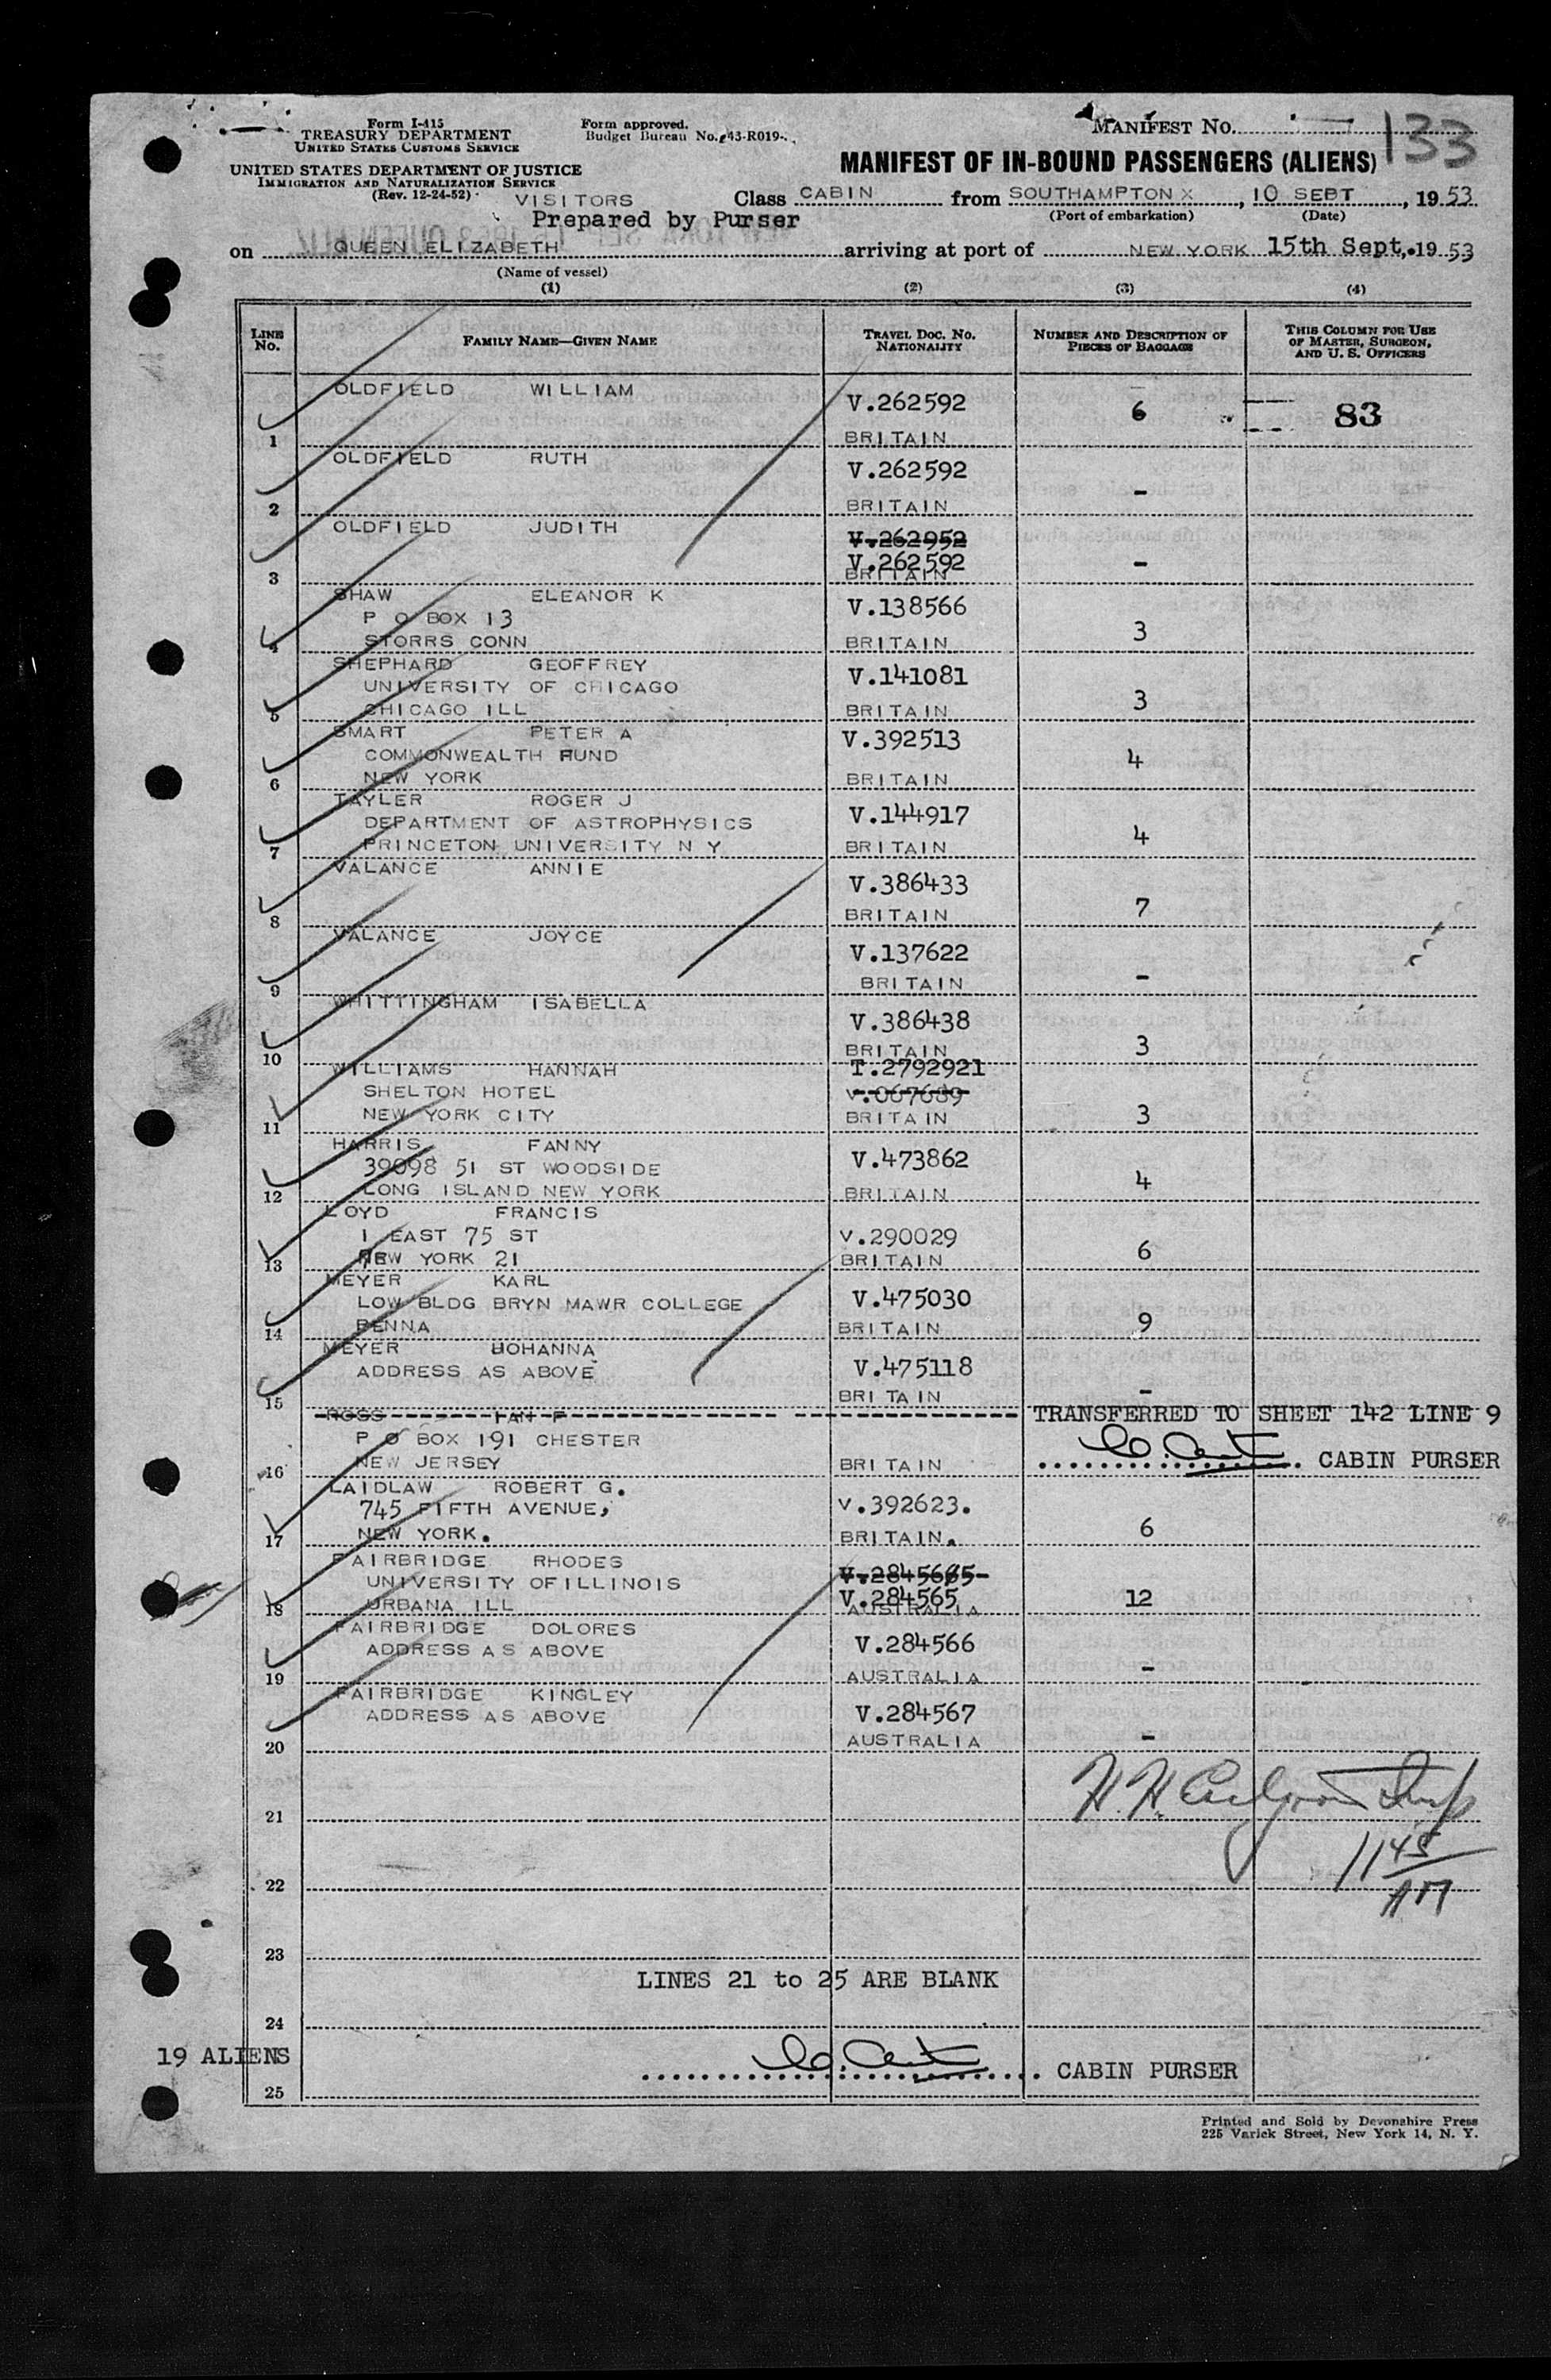 Form I-415
TREASURY DEPARTMENT
UNITED STATES CUSTOMS SERVICE
UNITED STATES DEPARTMENT OF JUSTICE
IMMIGRATION AND NATURALIZATION SERVICE
(Rev. 12-24-52)
Form approved.
Budget Bureau No. 43-R019-
MANIFEST NO. 133
MANIFEST OF IN-BOUND PASSENGERS (ALIENS)
VISITORS Class CABIN from SOUTHAMPTON X, 10 SEPT, 1953
Prepared by Purser (Port of embarkation) (Date)
on QUEEN ELIZABETH arriving at port of NEW YORK 15th Sept, 1953
(Name of vessel)
(1) (2) (3) (4)
LINE NO. FAMILY NAME—GIVEN NAME TRAVEL DOC. NO. NATIONALITY NUMBER AND DESCRIPTION OF PIECES OF BAGGAGE THIS COLUMN FOR USE OF MASTER, SURGEON, AND U. S. OFFICERS
OLDFIELD WILLIAM V.262592 6 83
1 BRITAIN
OLDFIELD RUTH V.262592 -
2 BRITAIN
OLDFIELD JUDITH V.262952
V.262592 -
3 BRITAIN
SHAW ELEANOR K V.138566
P O BOX 13 3
4 STORRS CONN BRITAIN
SHEPHARD GEOFFREY V.141081
UNIVERSITY OF CHICAGO 3
5 CHICAGO ILL BRITAIN
SMART PETER A V.392513
COMMONWEALTH FUND 4
6 NEW YORK BRITAIN
TAYLER ROGER J V.144917
DEPARTMENT OF ASTROPHYSICS 4
7 PRINCETON UNIVERSITY N Y BRITAIN
VALANCE ANNIE V.386433
8 BRITAIN 7
VALANCE JOYCE V.137622
9 BRITAIN -
WHITTINGHAM ISABELLA V.386438
10 BRITAIN 3
WILLIAMS HANNAH T.2792921
SHELTON HOTEL V.067689
11 NEW YORK CITY BRITAIN 3
HARRIS FANNY V.473862
39098 51 ST WOODSIDE 4
12 LONG ISLAND NEW YORK BRITAIN
LOYD FRANCIS
1 EAST 75 ST V.290029 6
13 NEW YORK 21 BRITAIN
MEYER KARL V.475030
LOW BLDG BRYN MAWR COLLEGE
14 PENNA BRITAIN 9
MEYER JOHANNA V.475118
ADDRESS AS ABOVE
15 BRITAIN -
ROSS IAN F TRANSFERRED TO SHEET 142 LINE 9
P O BOX 191 CHESTER
16 NEW JERSEY BRITAIN CABIN PURSER
LAIDLAW ROBERT G.
745 FIFTH AVENUE, V.392623. 6
17 NEW YORK. BRITAIN.
FAIRBRIDGE RHODES V.2845665
UNIVERSITY OF ILLINOIS V.284565 12
18 URBANA ILL AUSTRALIA
FAIRBRIDGE DOLORES V.284566
ADDRESS AS ABOVE
19 AUSTRALIA -
FAIRBRIDGE KINGLEY V.284567
ADDRESS AS ABOVE
20 AUSTRALIA -
21
1145
AM
22
23
LINES 21 to 25 ARE BLANK
24
19 ALIENS
CABIN PURSER
25
Printed and Sold by Devonshire Press
225 Varick Street, New York 14, N. Y.